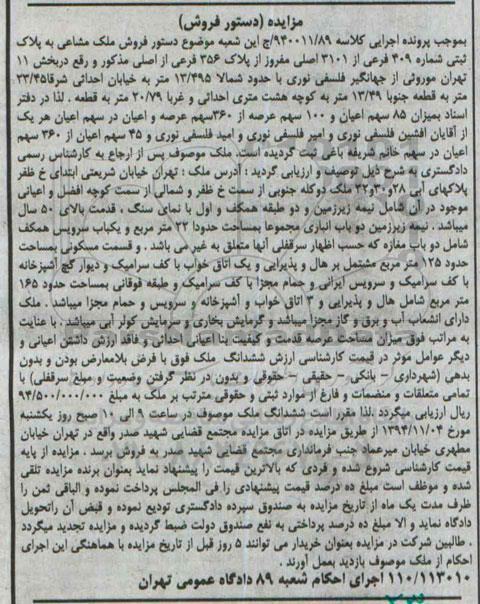 مزایده (دستور فروش)
بموجب پرونده اجرایی کلاسه ۹۴۰۰۱۱/۸۹/ج این شعبه موضوع دستور فروش ملک مشاعی به پلاک
ثبتی شماره ۴۰۹ فرعی از ۳۱۰۱ اصلی مفروز از پلاک ۳۵۶ فرعی از اصلی مذکور و رفع دربخش ۱۱
تهران موروثی از جهانگیر فلسفی نوری با حدود شمالا ۱۳/۴۹۵ متر به خیابان احداثی شرقا۲۳/۴۵
متر به قطعه جنوبا ۱۳/۴۹ متر به کوچه هشت متری احداثی و غربا ۲۰/۷۹ متر به قطعه . لذا در دفتر
اسناد بمیزان ۸۵ سهم اعیان و ۱۰۰ سهم عرصه از ۳۶۰سهم عرصه و اعیان در سهم اعیان هر یک
از آقایان افشین فلسفی نوری و امیر فلسفی نوری و امید فلسفی نوری و ۴۵ سهم اعیان از ۳۶۰ سهم
اعیان در سهم خانم شریفه باغی ثبت گردیده است. ملک موصوف پس از ارجاع به کارشناس رسمی
دادگستری به شرح ذیل توصیف و ارزیابی گردید : آدرس ملک : تهران خیابان شریعتی ابتدای خ ظفر
پلاکهای آبی ۲۸و۳۰و۳۲ ملک دوکله جنوبی از سمت خ ظفر و شمالی از سمت کوچه افضل و اعیانی
موجود در آن شامل نیمه زیرزمین و دو طبقه همکف و اول با نمای سنگ ، قدمت بالای ۵۰ سال
میباشد . نیمه زیرزمین دو باب انباری مجموعا بمساحت حدودا ۲۳ متر مربع و یکباب سرویس همکف
شامل دو باب مغازه که حسب اظهار سرقفلی آنها متعلق به غیر می باشد . و قسمت مسکونی بمساحت
حدود ۱۲۵ متر مربع مشتمل بر هال و پذیرایی و یک اتاق خواب با کف سرامیک و دیوار گچ آشپزخانه
با کف سرامیک و سرویس ایرانی و حمام مجزا با کف سرامیک و طبقه فوقانی بمساحت حدود ۱۶۵
متر مربع شامل هال و پذیرایی و ۳ اتاق خواب و آشپزخانه و سرویس و حمام مجزا میباشد . ملک
دارای انشعاب آب و برق و گاز مجزا میباشد و گرمایش بخاری و سرمایش کولر آبی میباشد . با عنایت
به مراتب فوق میزان مساحت عرصه قدمت و کیفیت بنا اعیانی احداثی و فاقد ارزش داشتن اعیانی و
دیگر عوامل موثر در قیمت کارشناسی ارزش ششدانگ ملک فوق با فرض بلامعارض بودن و بدون
بدهی (شهرداری – بانکی – حقیقی – حقوقی و بدون در نظر گرفتن وضعیت و مبلغ سرقفلی) با
تمامی متعلقات و منضمات و فارغ از موارد ثبتی و حقوقی مترتب بر ملک به مبلغ ۹۴/۵۰۰/۰۰۰/۰۰۰
ریال ارزیابی میگردد .لذا مقرر است ششدانگ ملک موصوف در ساعت ۹ الی ۱۰ صبح روز یکشنبه
مورخ ۱۳۹۴/۱۱/۰۴ از طریق مزایده در اتاق مزایده مجتمع قضایی شهید صدر واقع در تهران خیابان
مطهری خیابان میرعماد جنب فرمانداری مجتمع قضایی شهید صدر به فروش برسد . مزایده از پایه
قیمت کارشناسی شروع شده و فردی که بالاترین قیمت را پیشنهاد نماید بعنوان برنده مزایده تلقی
شده و موظف است مبلغ ده درصد قیمت پیشنهادی را فی المجلس پرداخت نموده و الباقی ثمن را
ظرف مدت یک ماه از تاریخ مزایده به صندوق سپرده دادگستری تودیع نموده و قبض آن راتحویل
دادگاه نماید و الا مبلغ ده درصد پرداختی به نفع صندوق دولت ضبط گردیده و مزایده تجدید میگردد
. طالبین شرکت در مزایده بعنوان خریدار می توانند ۵ روز قبل از تاریخ مزایده با هماهنگی این اجرای
احکام از ملک موصوف بازدید بعمل آورند .
۱۱۰/۱۱۳۰۱۰ اجرای احکام شعبه ۸۹ دادگاه عمومی تهران